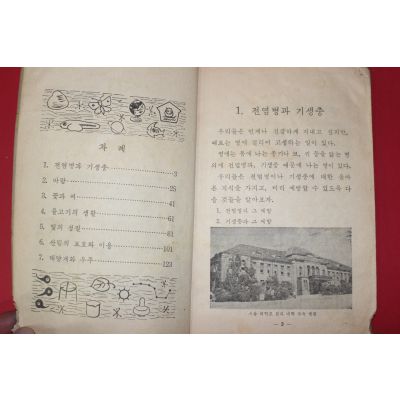 차 례
1. 전염병과 기생충 3
2. 바람 25
3. 꽃과 씨 41
4. 물고기의 생활 61
5. 빛의 성질 81
6. 산림의 보호와 이용 101
7. 태양계와 우주 123
1. 전염병과 기생충
우리들은 언제나 건강하게 지내고 싶지만,
때로는 병에 걸리어 고생하는 일이 있다.
병에는 몸에 나는 종기나 코, 귀 등을 앓는 병
외에 전염병과, 기생충 때문에 나는 병이 있다.
우리들은 전염병이나 기생충에 대한 올바
른 지식을 가지고, 미리 예방할 수 있도록 다
음 것들을 알아보자.
1. 전염병과 그 예방
2. 기생충과 그 예방
서울 대학교 의과 대학 부속 병원
- 3 -